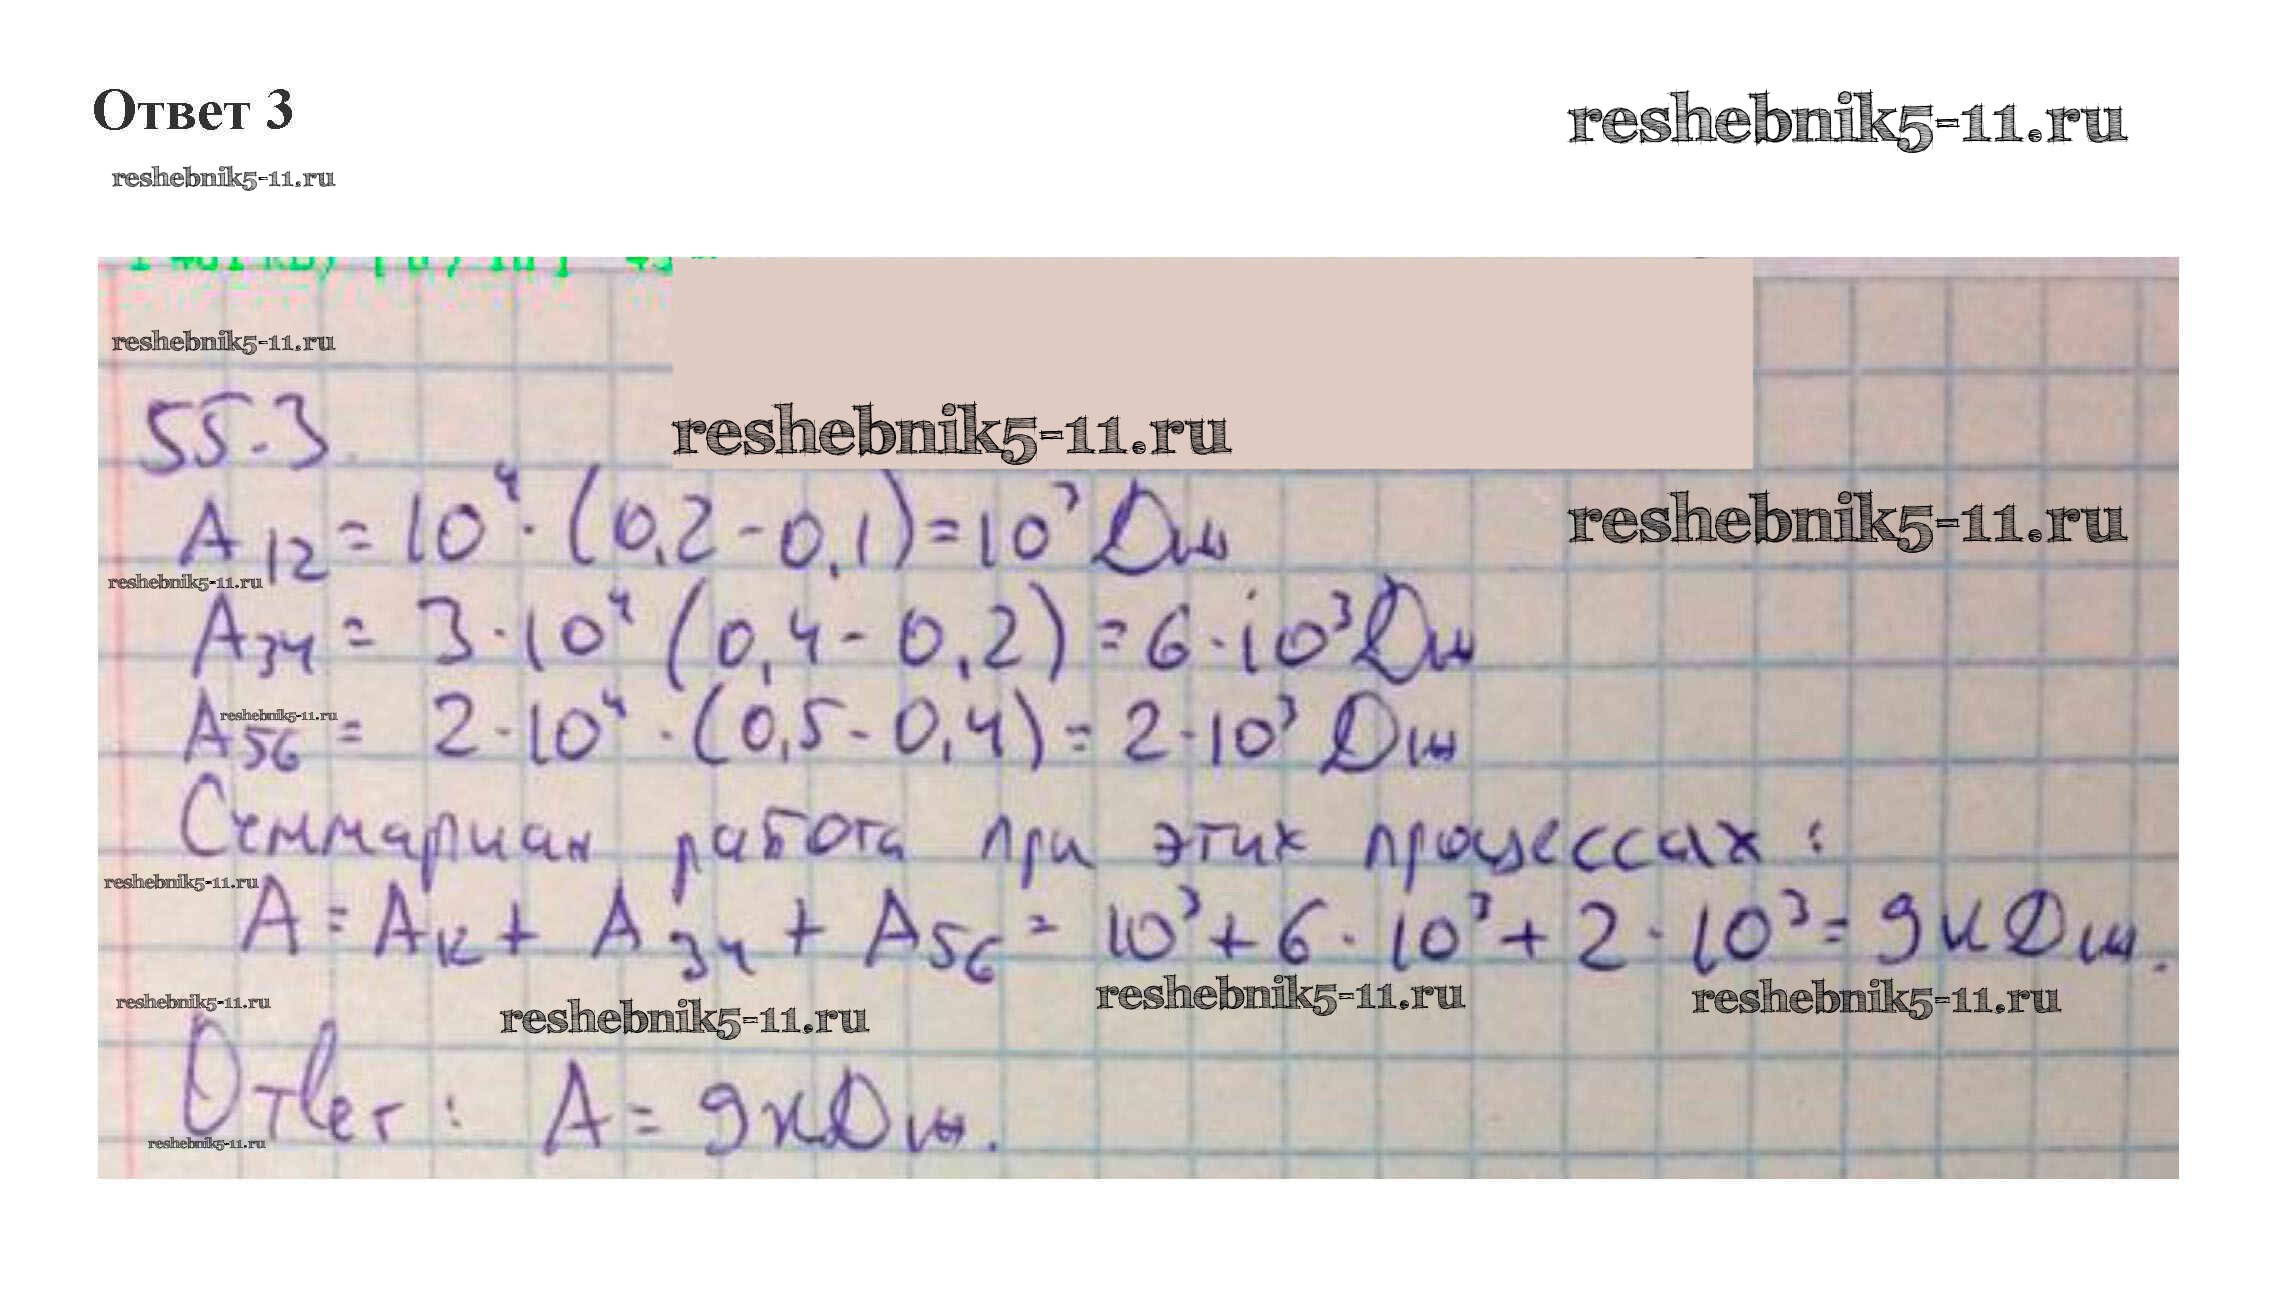 Ответ 3
reshebnik5-11.ru
reshebnik5-11.ru
reshebnik5-11.ru
55.3.
reshebnik5-11.ru
A₁₂ = 10⁴ · (0,2 - 0,1) = 10³ Дж
reshebnik5-11.ru
reshebnik5-11.ru
A₃₄ = 3 · 10⁴ (0,4 - 0,2) = 6 · 10³ Дж
reshebnik5-11.ru
A₅₆ = 2 · 10⁴ · (0,5 - 0,4) = 2 · 10³ Дж
Суммарная работа при этих процессах:
reshebnik5-11.ru
A = A₁₂ + A₃₄ + A₅₆ = 10³ + 6 · 10³ + 2 · 10³ = 9 кДж.
reshebnik5-11.ru
reshebnik5-11.ru
reshebnik5-11.ru
reshebnik5-11.ru
Ответ: A = 9 кДж.
reshebnik5-11.ru